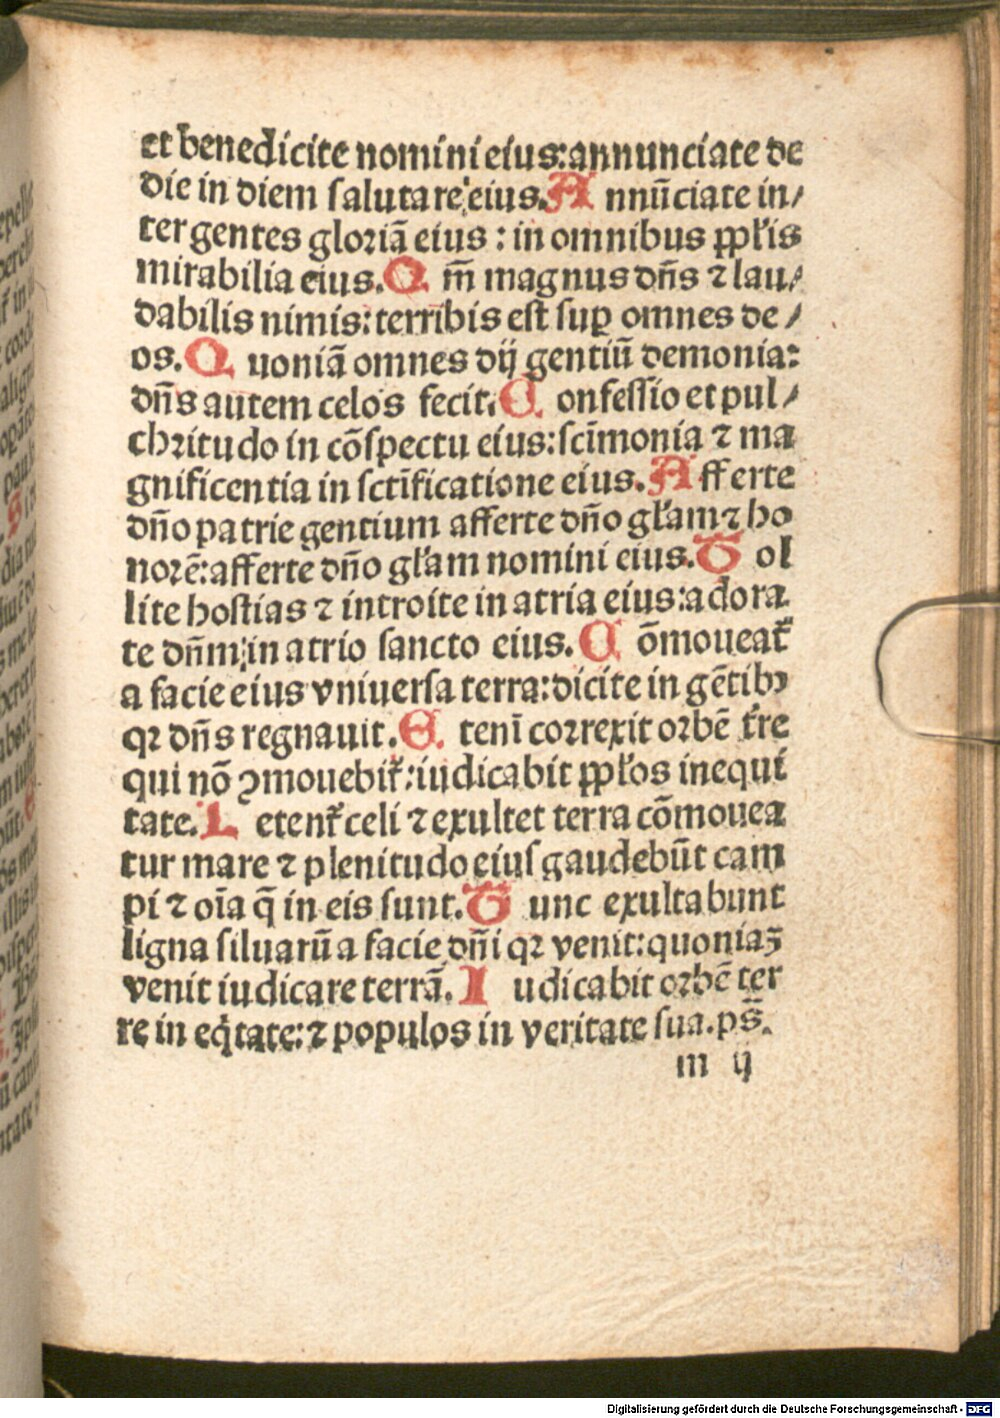 et benedicite nomini eius:annunciate de
die in diem salutare eius. A nnūciate in/
ter gentes gloriā eius : in omnibus pp̄lis
mirabilia eius. Q m̄ magnus dn̄s ⁊ lau/
dabilis nimis: terribis est suꝑ omnes de/
os. Q uoniā omnes dij gentiū demonia:
dn̄s autem celos fecit. C onfessio et pul/
chritudo in cōspectu eius:scīmonia ⁊ ma
gnificentia in sctīficatione eius. A fferte
dn̄o patrie gentium afferte dn̄o gl̄am ⁊ ho
norē:afferte dn̄o gl̄am nomini eius. T ol
lite hostias ⁊ introite in atria eius:adora
te dn̄m:in atrio sancto eius. C ōmoueat᷑
a facie eius vniuersa terra:dicite in gētibꝯ
qꝛ dn̄s regnauit. E tenī correxit orbē t̄re
qui nō ꝯmouebit᷑:iudicabit pp̄los in equi
tate. L etent᷑ celi ⁊ exultet terra cōmouea
tur mare ⁊ plenitudo eius gaudebūt cam
pi ⁊ oīa q̄ in eis sunt. T unc exultabunt
ligna siluarū a facie dn̄i qꝛ venit:quoniaꝫ
venit iudicare terrā. I udicabit orbē ter
re in eq̇tate:⁊ populos in veritate sua.ps̄.
m ij
Digitalisierung gefördert durch die Deutsche Forschungsgemeinschaft - DFG